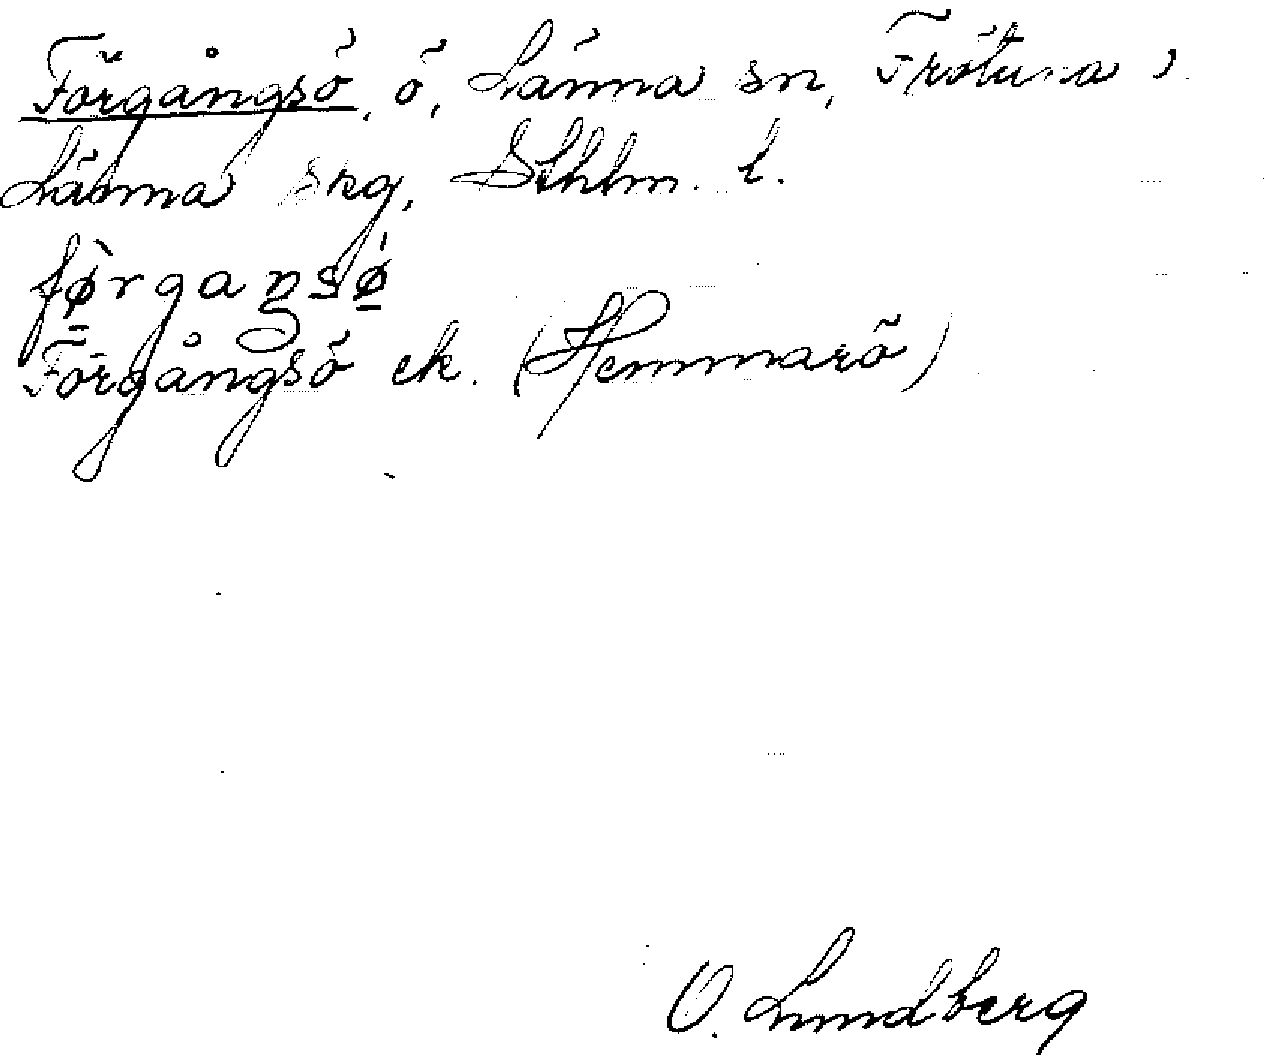 Förgångsö, ö, Länna sn, Frötuna o
Länna skg, Sthlm. l.
Förgångsö ek. (Hemmarö)
O. Lundberg